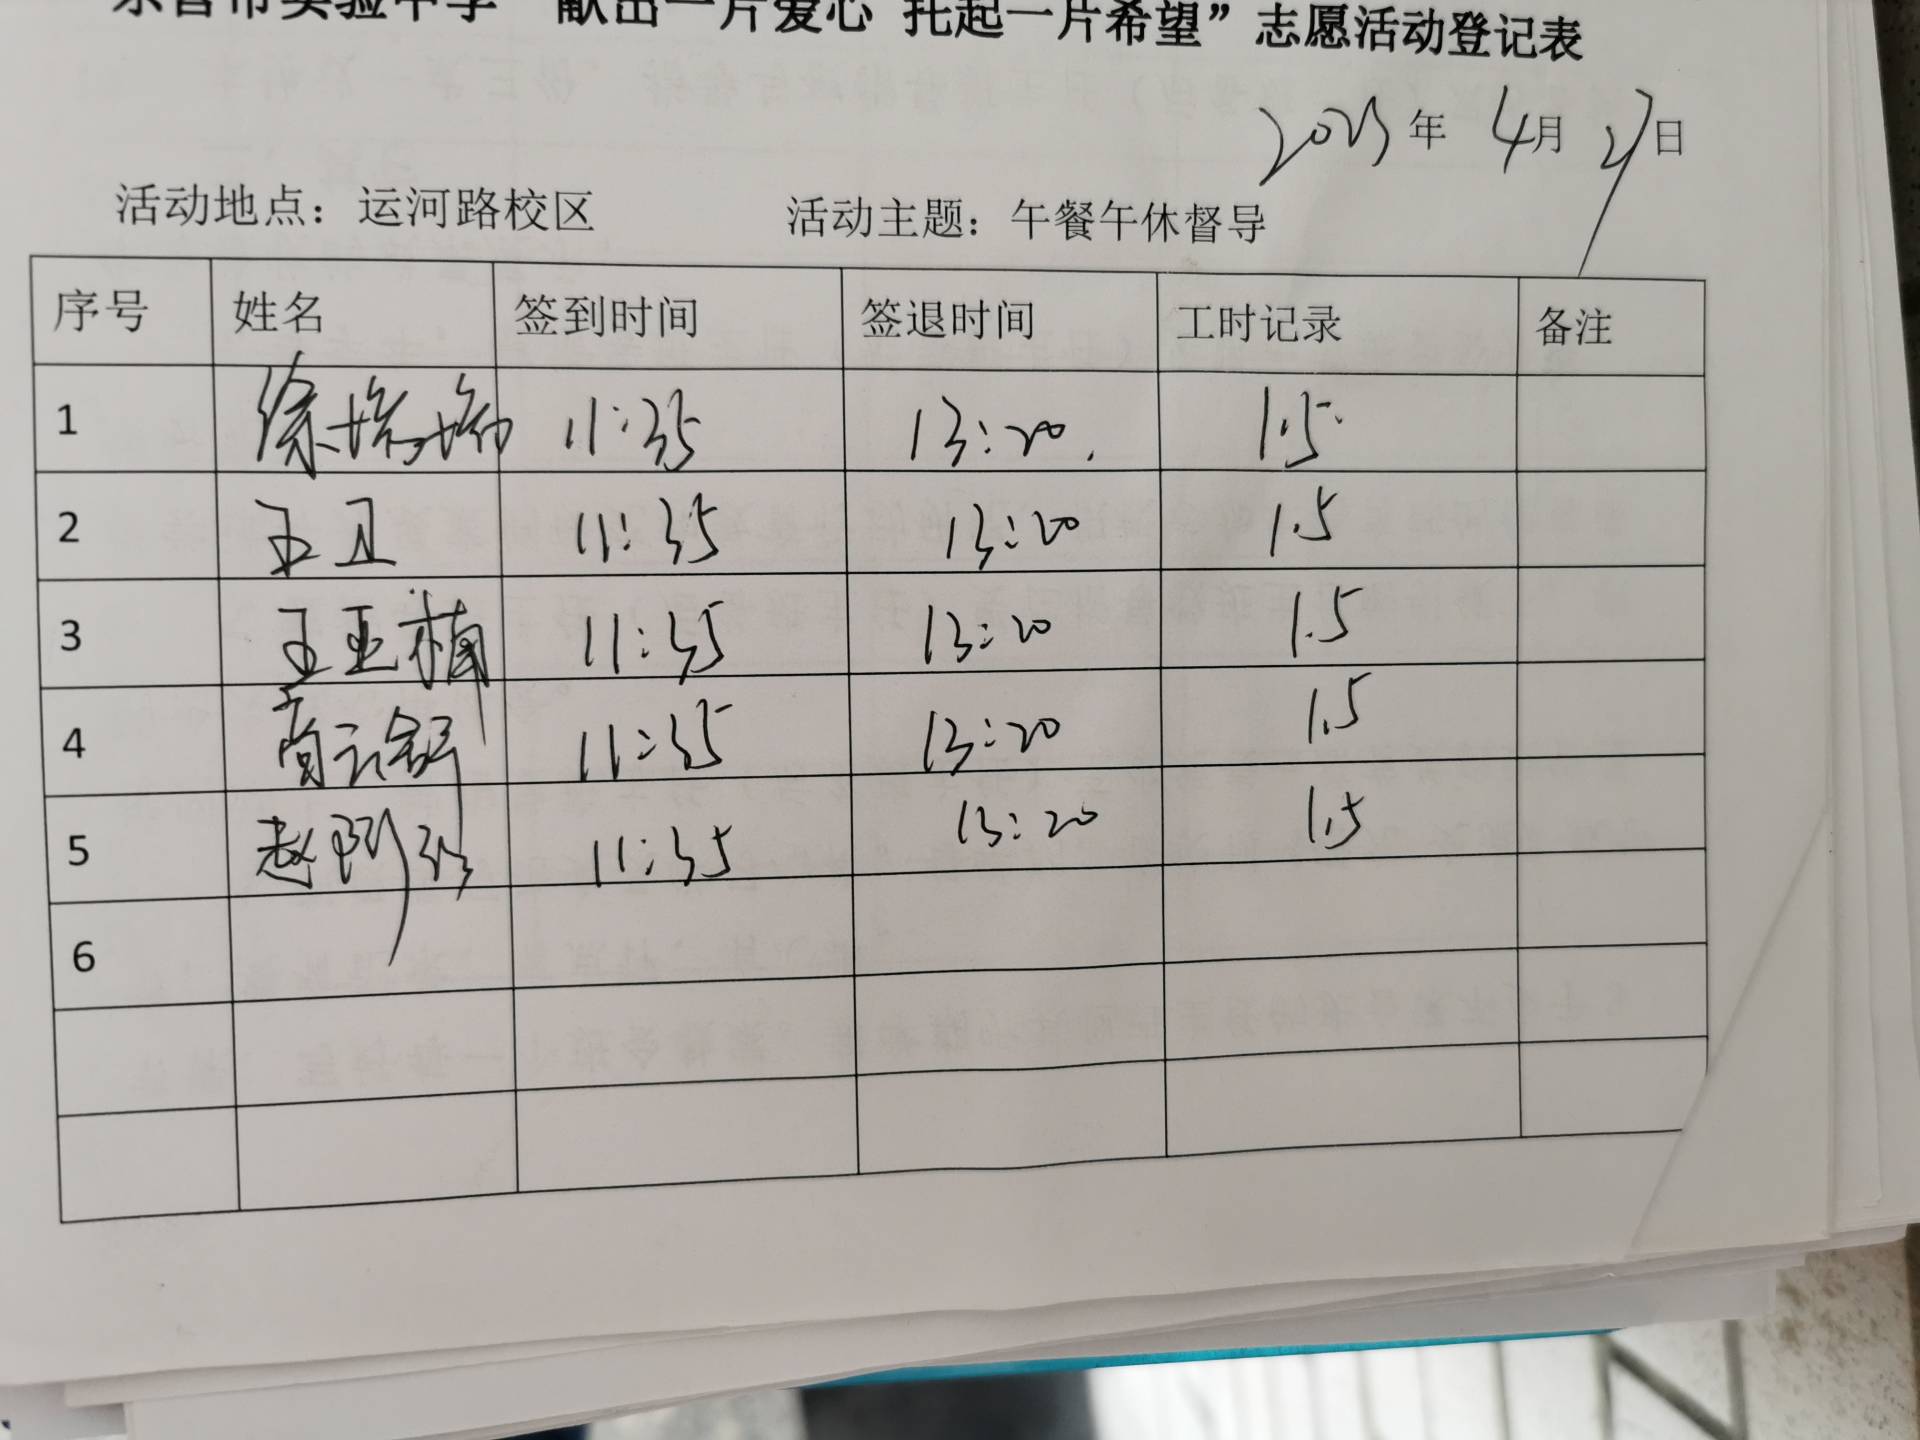 实验中学“献出一片爱心 托起一片希望”志愿活动登记表
2023年 4月 27日
活动地点：运河路校区 活动主题：午餐午休督导
序号 姓名 签到时间 签退时间 工时记录 备注
1 徐 11:35 13:20. 1.5
2 王卫 11:35 13:20 1.5
3 王亚楠 11:35 13:20 1.5
4 11:35 13:20 1.5
5 赵 11:35 13:20 1.5
6